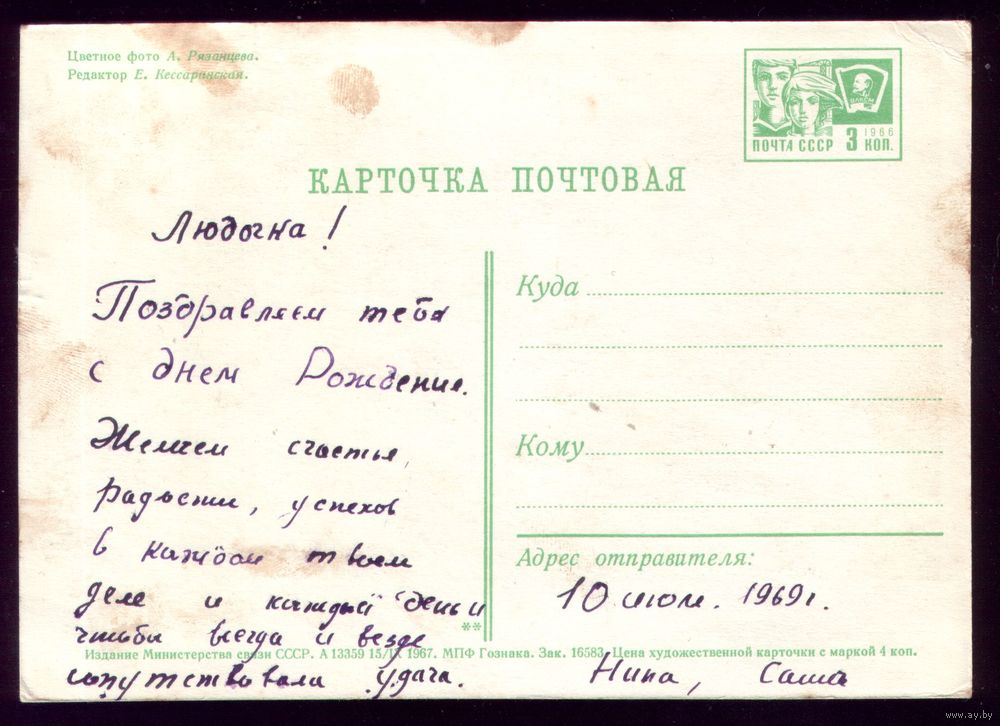 Цветное фото А. Рязанцева.
Редактор Е. Кессаринская.
ВЛКСМ
1966
ПОЧТА СССР 3 КОП.
КАРТОЧКА ПОЧТОВАЯ
Людочка!
Поздравляем тебя
с днем Рождения.
Желаем счастья,
радости, успехов
в каждом твоем
деле и каждый день и
чтобы всегда и везде
сопутствовала удача.
Куда
Кому
Адрес отправителя:
10 июля. 1969г.
**
Издание Министерства связи СССР. А 13359 15/IX 1967. МПФ Гознака. Зак. 16583. Цена художественной карточки с маркой 4 коп.
Нина, Саша
www.ay.by